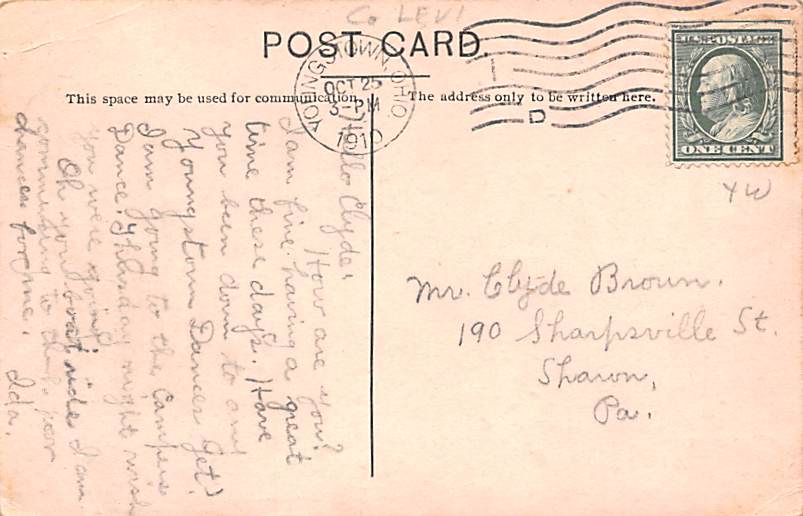 Co LEVI
POST CARD
YOUNGSTOWN, OHIO.
OCT 25
3-PM
1910
D
This space may be used for communication.
The address only to be written here.
U.S. POSTAGE
ONE CENT
YW
Hello Clyde,
How are you?
I am fine. having a great
time these days. Have
you been down to any
Youngstown Dances yet?
I am going to the Campers
Dance. Thursday night wish
you were going.
Oh you boat ride I am
dances for me.
Ida.
Mr. Clyde Brown.
190 Sharpsville St.
Sharon,
Pa.